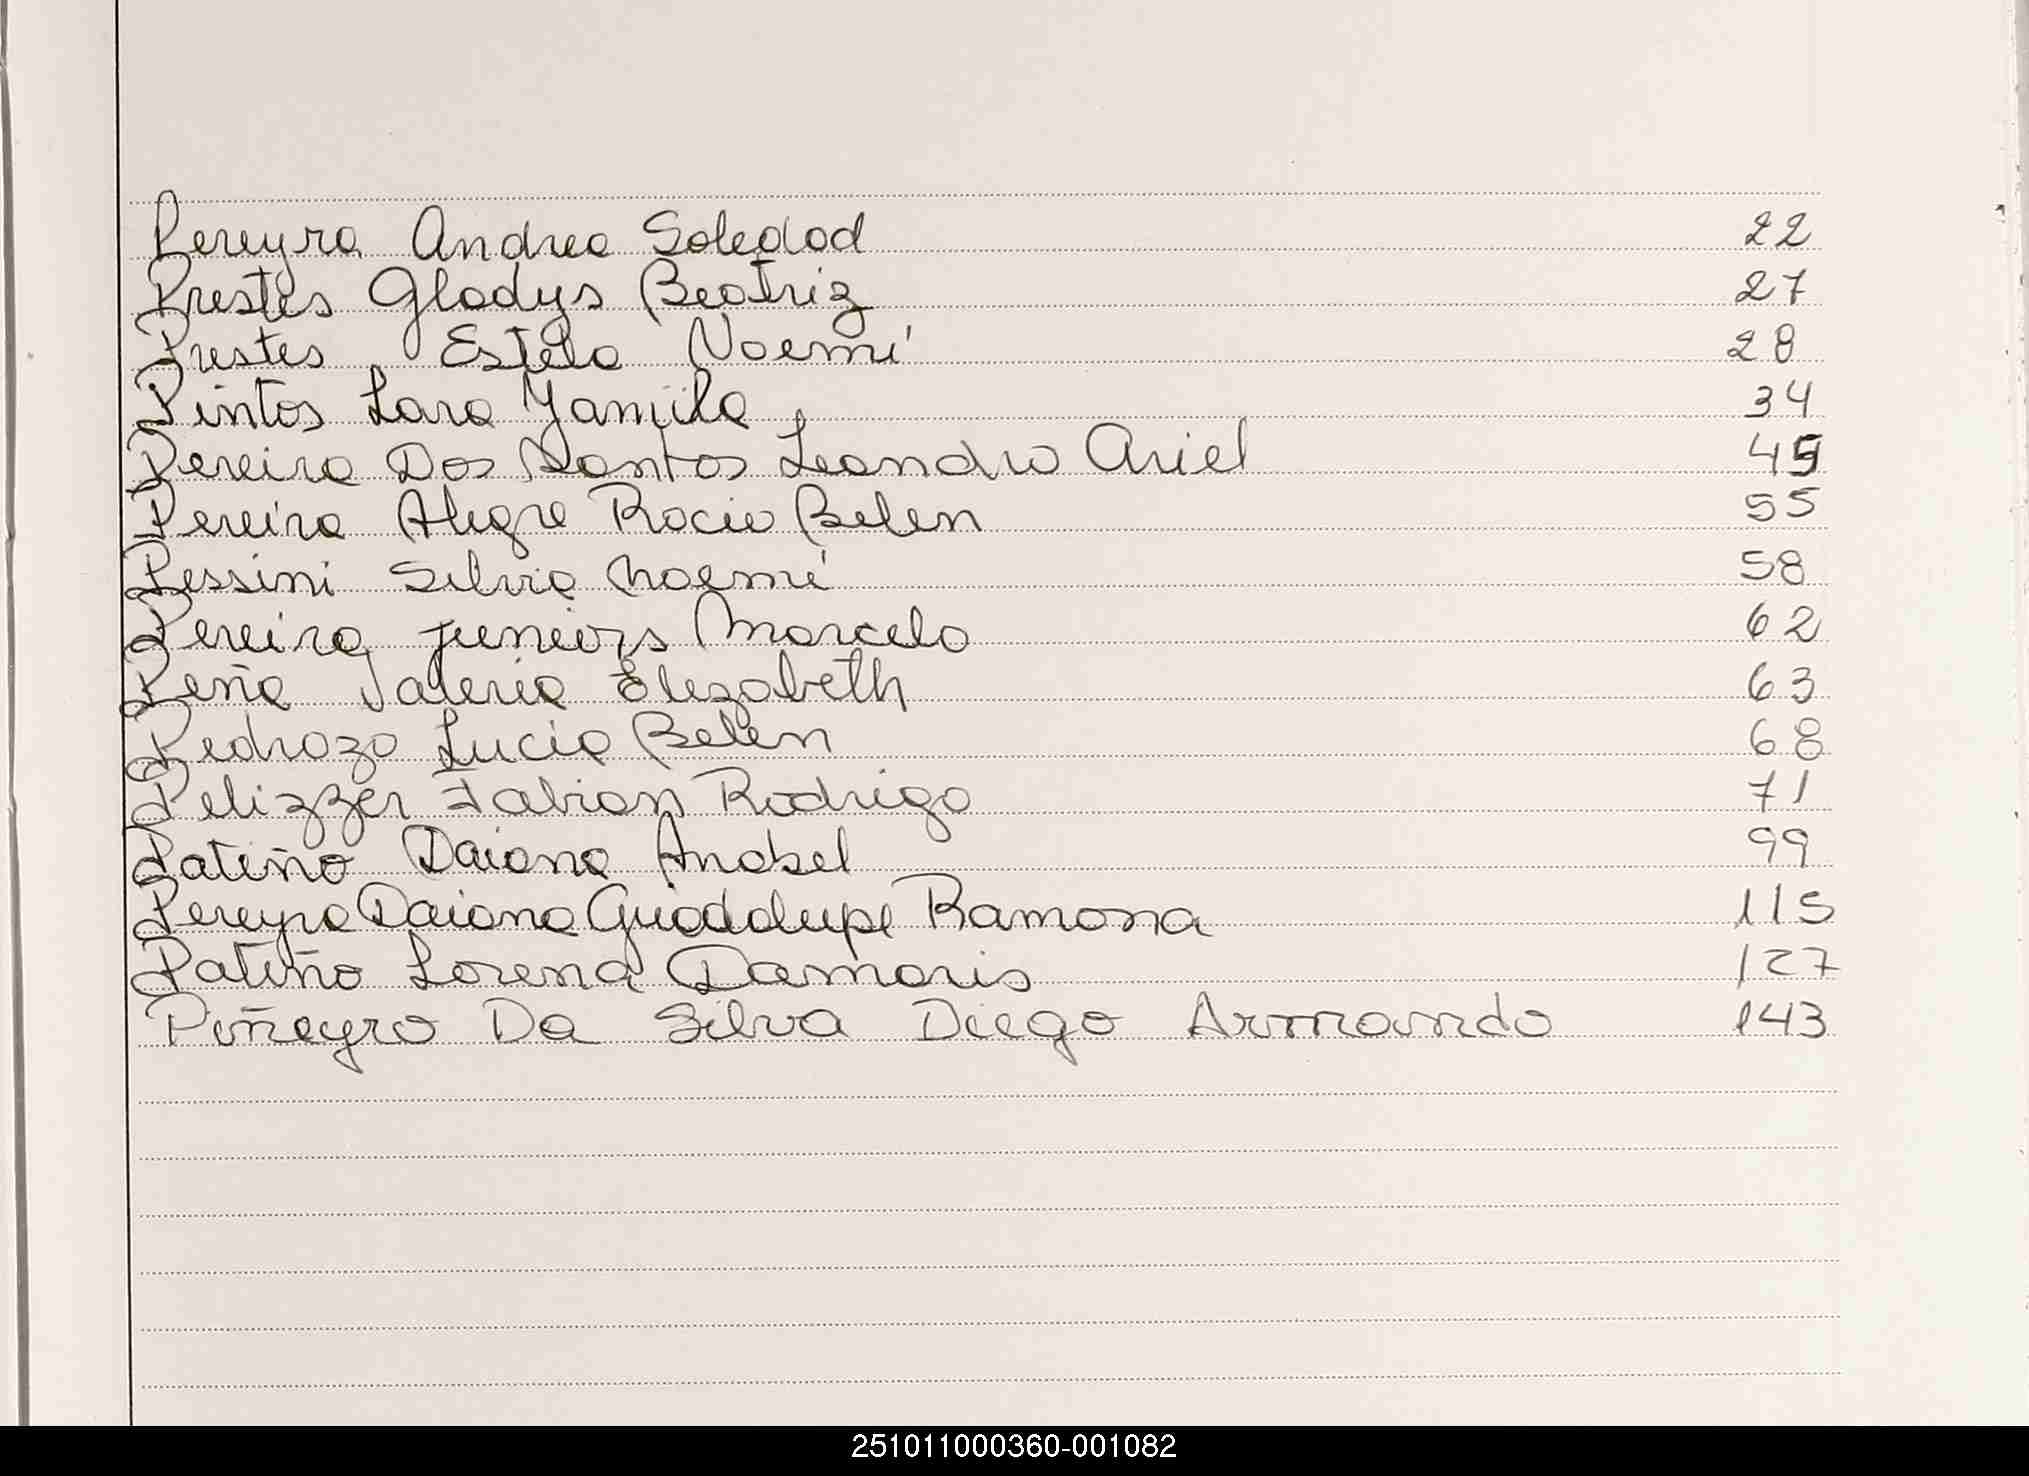 Pereyra Andrea Soledad 22
Prestes Gladys Beatriz 27
Prestes Estela Noemí 28
Pintos Lara Yamila 34
Pereira Dos Santos Leandro Ariel 45
Pereira Alegre Rocio Belen 55
Pessini Silvia Noemí 58
Pereira Juniors Marcelo 62
Peña Valeria Elizabeth 63
Pedrozo Lucia Belen 68
Pelizzer Fabian Rodrigo 71
Patiño Daiana Anabel 99
Pereyra Daiana Guadalupe Ramona 115
Patiño Lorena Damaris 127
Piñeyro Da Silva Diego Armando 143
251011000360-001082